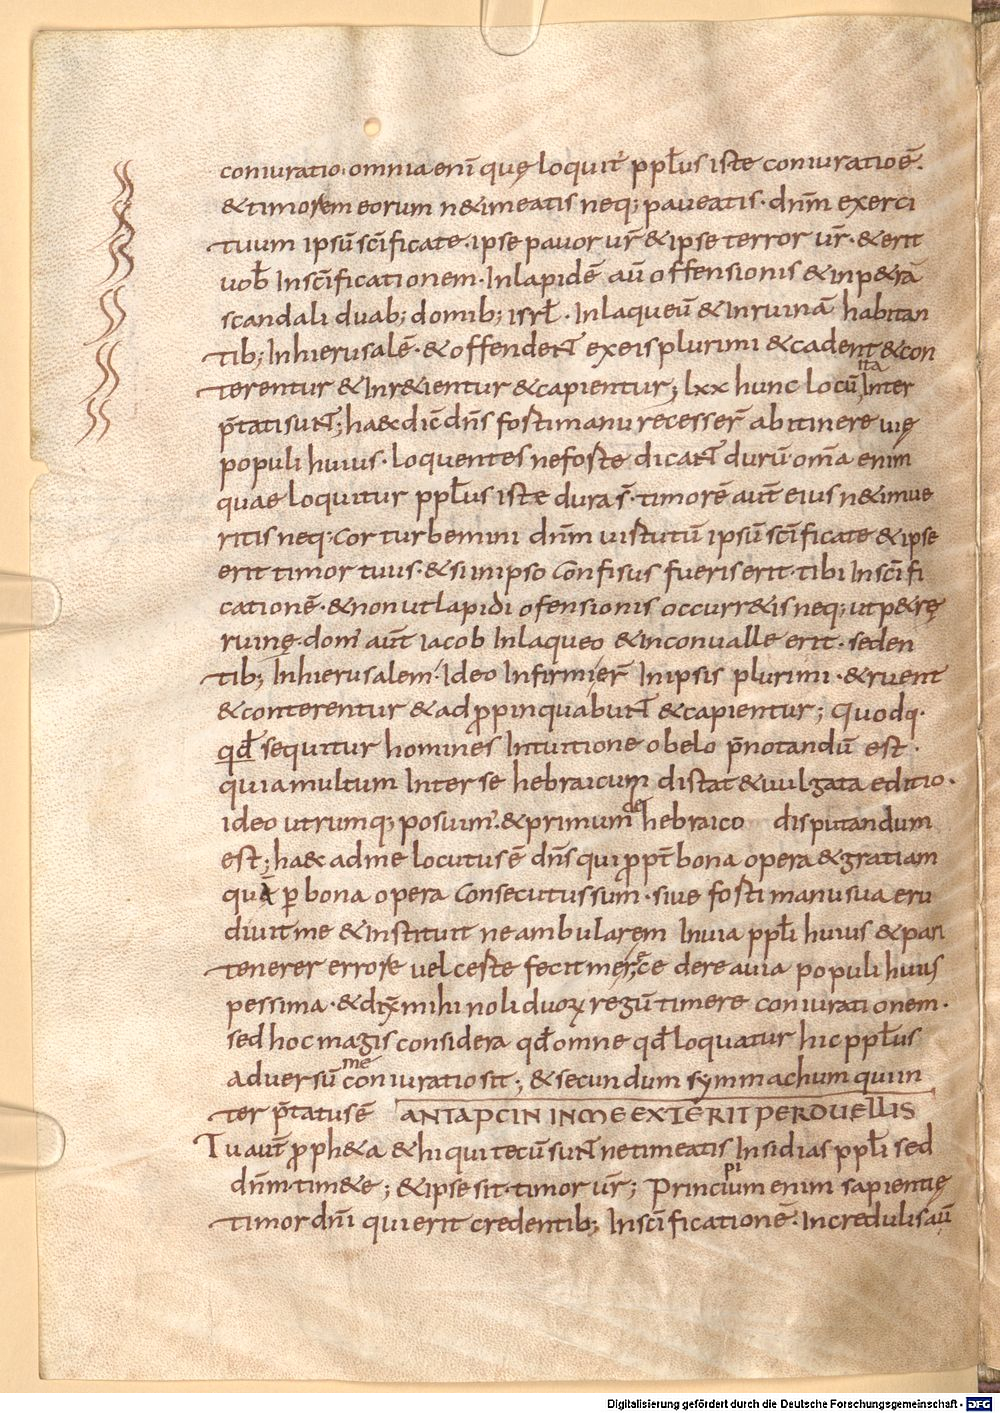 coniuratio. omnia eni̅ quę loquit᾿ pp̅ls iste coniuratio e̅.
& timorem eorum n& imeatis neq; paueatis. dn̅m exerci
tuum ipsu̅ sc̅ificate. ipse pauor ur̅ & ipse terror ur̅. & erit
uob̅ In sc̅ificationem. In lapide̅ au̅ offensionis & in p&ra̅
scandali duab; domib; isrl̅. In laqueu̅ & In ruina̅ habitan
tib; In hierusale̅. & offendent ex eis plurimi & cadent & con
terentur & Inr&ientur & capientur; lxx hunc locu̅ ita Inter
p̅tati sunt; haec dic̅ dn̅s forti manu recesser̅ ab itinere uię
populi huius. loquentes ne forte dicant duru̅. om̅a enim
quae loquitur pp̅ls iste dura s̅. timore̅ aut̅ eius n& imue
ritis neq; cor turbemini dn̅m uirtutu̅ ipsu̅ sc̅ificate & ipse
erit timor tuus. & si in ipso confisus fueris erit tibi In sc̅ifi
catione̅. & non ut lapidi ofensionis occurr&is neq; ut p&rę
ruinę. dom᾿ aut̅ iacob In laqueo & in conualle erit. seden
tib; In hierusalem. Ideo Infirmier̅ In ipsis plurimi. & ruent
& conterentur & adp̅pinquabunt & capientur; Quodq.
qd̅ sequitur homines Intuitione obelo p̅notandu̅ est.
quia multum Inter se hebraicum distat & uulgata editio.
ideo utrumq; posuim᾿. & primum de hebraico disputandum
est; haec ad me locutus e̅ dn̅s qui pp̅t bona opera & gratiam
qua̅ p̲ bona opera consecutus sum. siue forti manu sua eru
diuit me & Instituit ne ambularem In uia pp̅li huius & par
tenerer errore uel certe fecit me rece dere a uia populi huius
pessima. & dix̅ mihi noli duoꝝ regu̅ timere coniurationem.
sed hoc magis considera qd̅ omne qd̅ loquatur hic pp̅ls
aduersu̅ me coniuratio sit; & secundum symmachum qui in
ter p̅tatus e̅ ANTAPCIN IN ME EXIERIT PERDUELLIS
Tu aut̅ p̅ph&a & hi qui tecu̅ sunt ne timeatis Insidias pp̅li sed
dn̅m. tim&e; & ipse sit. timor ur̅; Principium enim sapientię
timor dn̅i qui erit credentib; In sc̅ificatione̅. Incredulis au̅
Digitalisierung gefördert durch die Deutsche Forschungsgemeinschaft - DFG